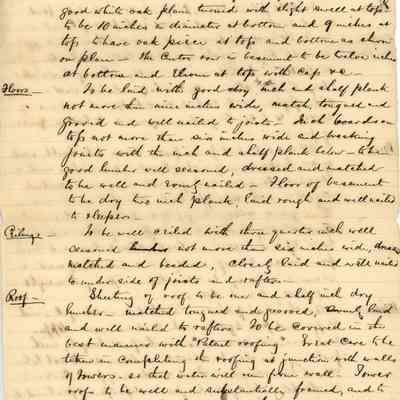 good white oak plain turned with slight swell at tops
to be 10 inches in diameter at bottom and 9 inches at
top to have oak piece at tops and bottom as shown
on plan - the Center row in basement to be twelve inches
at bottom and Eleven at top with Caps &c.
Floors - To be laid with good dry inch and half plank
not more than nine inches wide, match, tongued and
grooved and well nailed to joists - Inch boards on
top not more than six inches wide and breaking
joints with the inch and half plank below - to be
good lumber well seasoned, dressed and matched
to be well and nailed - Floor of basement
to be dry two inch plank, laid rough and well nailed
to sleepers.
Ceilings - To be well ceiled with three quarter inch well
seasoned lumber not more than six inches wide, dressed
matched and beaded, closely laid and well nailed
to under side of joists and rafters -
Roof - Sheeting of roof to be one and half inch dry
lumber - matched tongued and grooved, laid
and well nailed to rafters - To be covered in the
best manner with "Patent roofing" Great Care to be
taken in Completing the roofing at junction with walls
of towers - so that water will run from wall - Tower
roofs to be well and substantially framed, and to